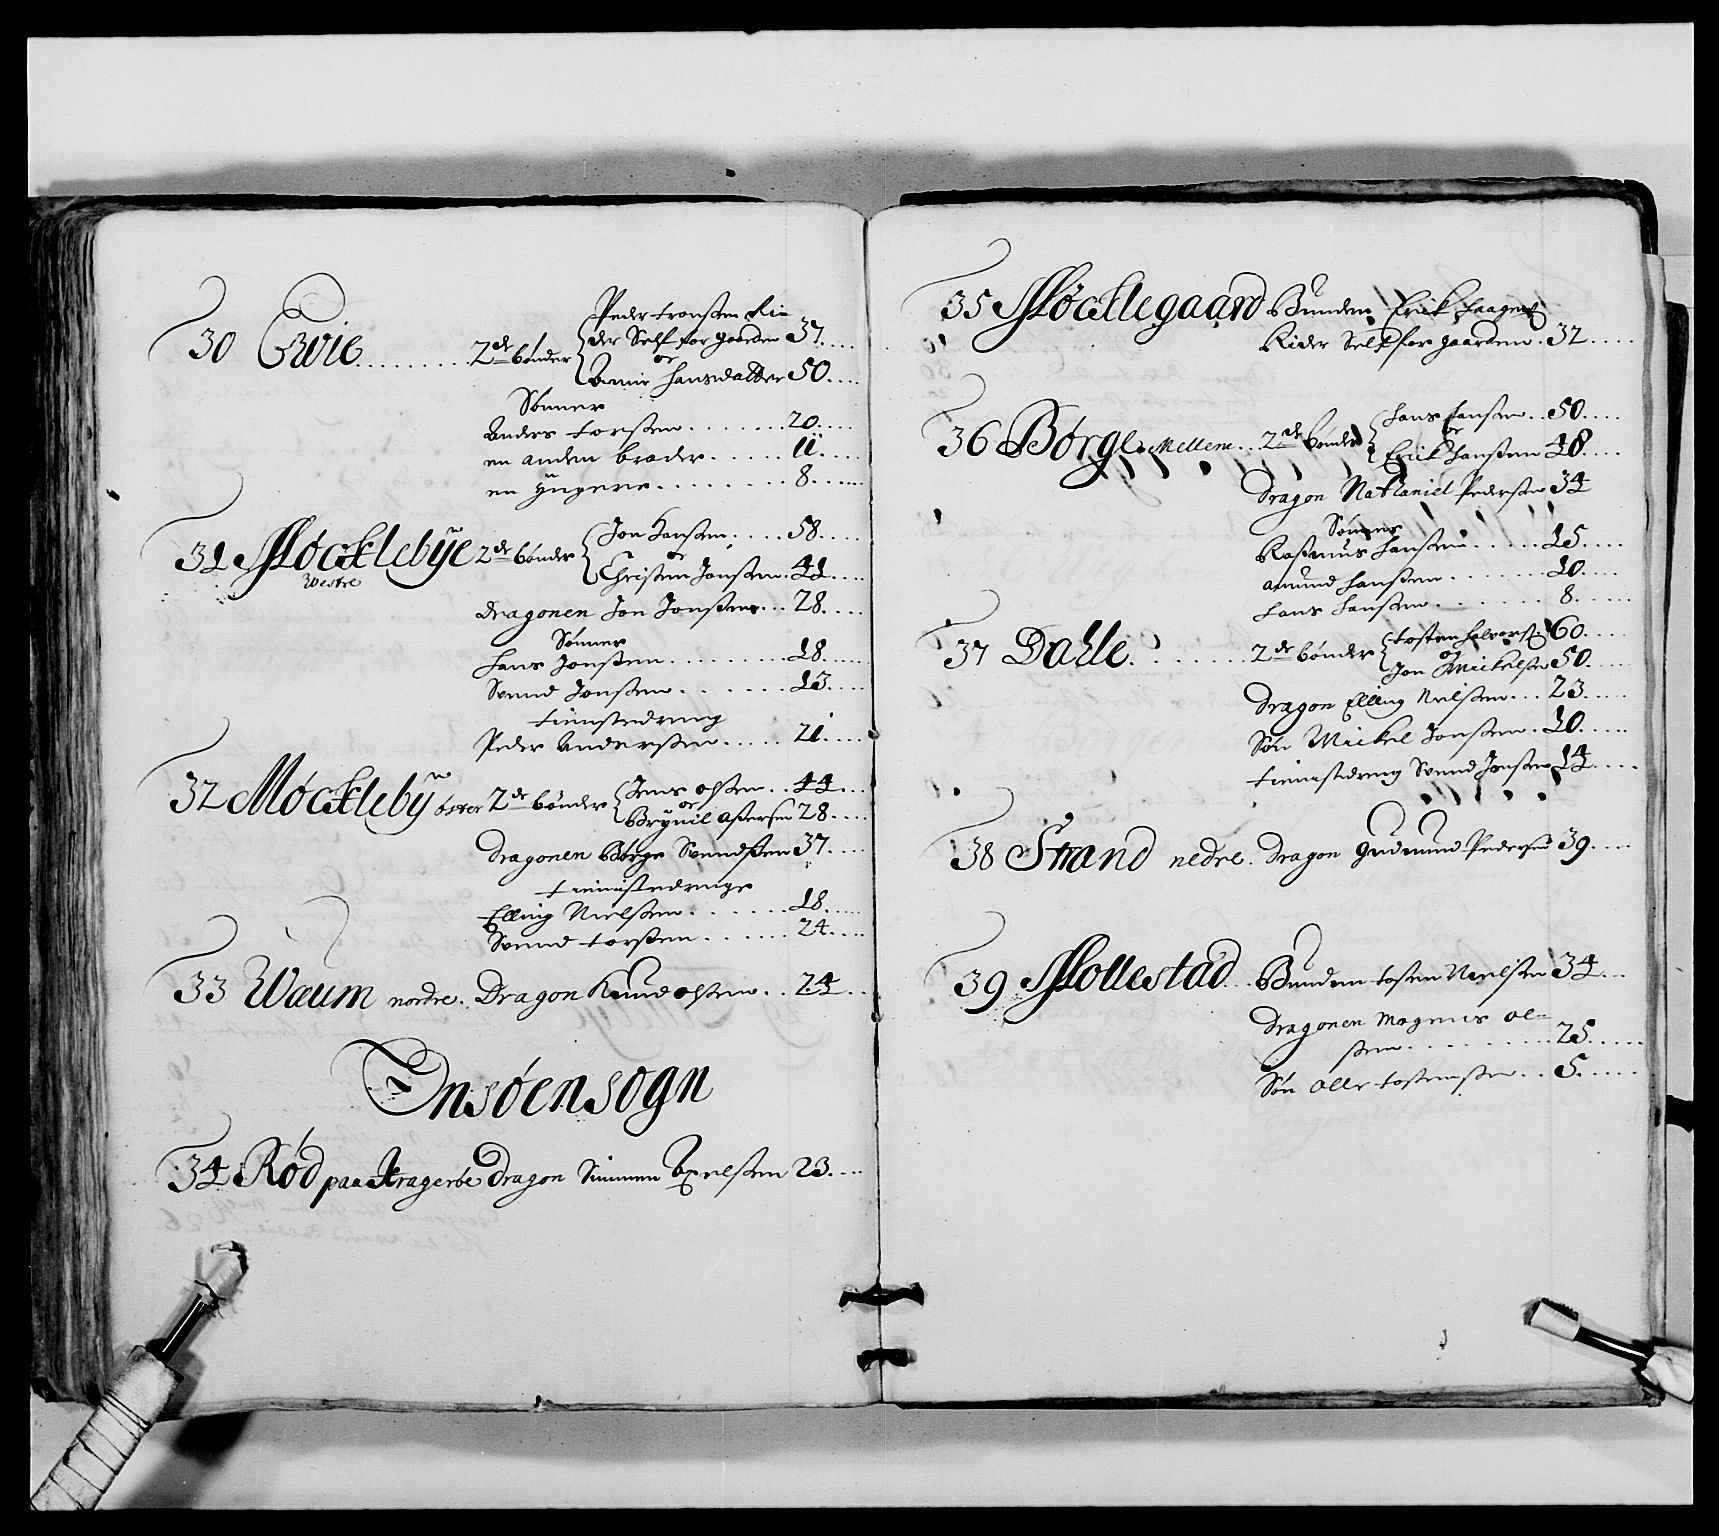 30 Evie ......... 2de bønder Peder tronsen Ri=
der Self for gaarden 37....
oc
Anne Hansdatter 50...
Sønner
Anders torsen ....... 20...
en anden broder ..... 11....
en yngere ........ 8......
31 Møcklebÿe Westre 2de bønder Jon Hansen .... 58....
oc
Christen Jonsen 41....
Dragonen Jon Jonsen ... 28....
Sønner
Hans Jonsen ......... 18.....
Svend Jonsen ....... 13....
tienistedreng
Peder Andersen ..... 21....
32 Møcklebÿ øster 2de bønder Jens olsen .. 44...
oc
Brynil Asersen 28....
Dragonen Børge Svendsen 37....
tienistedrenge
Elling Nielsen ...... 18....
Svend torsen ...... 24....
33 Wæum nordre. Dragon Knud olsen .. 24...
Onsøen sogn
34 Rød paa Kragerøe Dragon Simmen Axelsen 23....
35 Møcklegaard Bunden Erik Haagens
Rider Self for gaarden . 32.....
36 Børge Mellem ... 2de bønder Hans Hansen .. 50....
oc
Erik Hansen 48....
Dragon Nathaniel Pedersen 34
Sønner
Rasmus Hansen ..... 15....
Amund Hansen ....... 10....
Hans Hansen ....... 8.....
37 Dahle ........ 2de bønder tosten Halvors: 60....
og
Jon Mickelsen 50....
Dragon Elling Nielsen ... 23.....
Søn Mickel Jonsen . 10.....
tienistedreng Svend Jonsen 14.....
38 Strand nedre. Dragon Gudmund Pedersen 39....
39 Kollestad ... Bunden tosten Nielsen 34...
Dragonen Mognus ol=
sen ......... 25.....
Søn olle tostensen .. 5.....